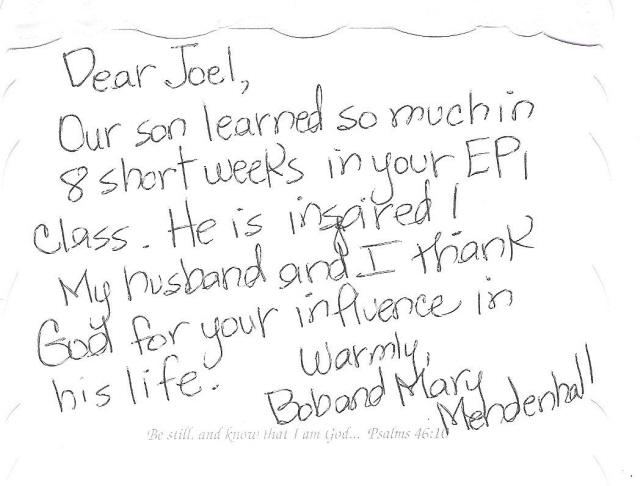 Dear Joel,
Our son learned so much in
8 short weeks in your EPI
class. He is inspired!
My husband and I thank
God for your influence in
his life.
Warmly,
Bob and Mary
Mendenhall
Be still, and know that I am God... Psalms 46:10